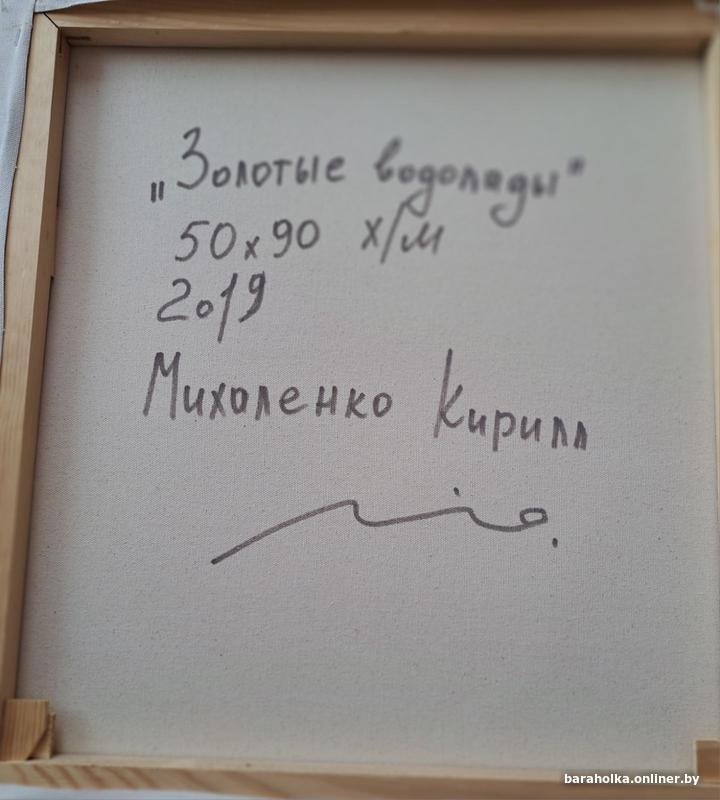 „Золотые водопады"
50х90 х/м
2019
Михаленко Кирилл
baraholka.onliner.by